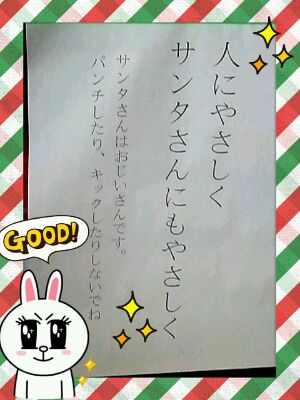 人にやさしく
サンタさんにもやさしく
サンタさんはおじいさんです。
パンチしたり、キックしたりしないでね
GOOD!